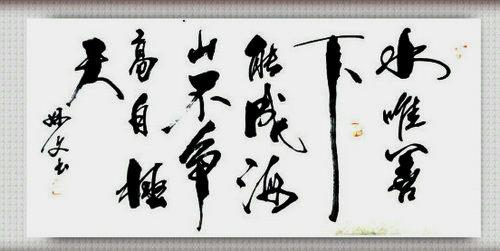 水唯善
下
能成海
山不争
高自極
天
文书